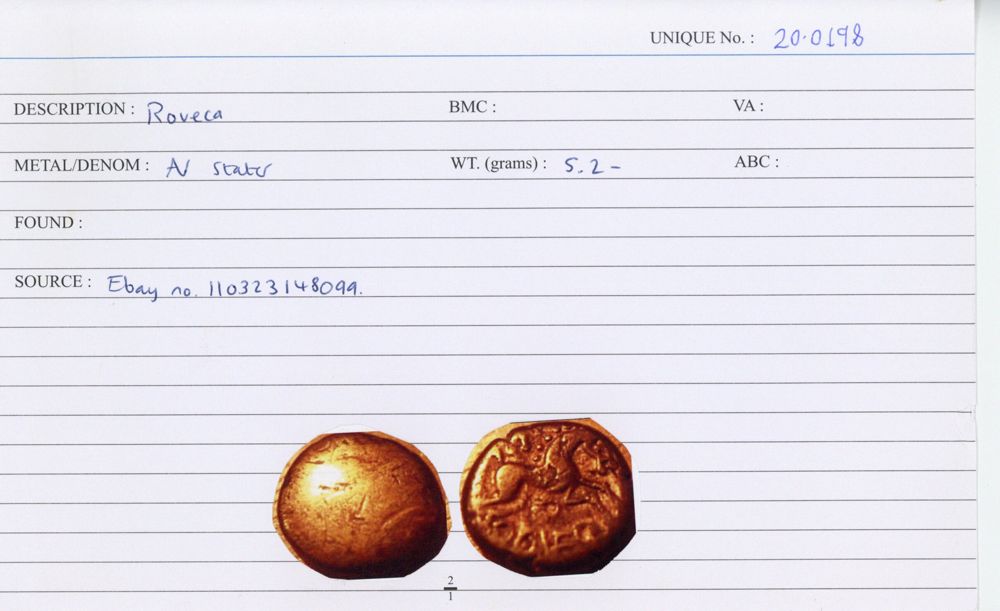 UNIQUE No. : 20.0198
DESCRIPTION : Roveca BMC : VA :
METAL/DENOM : AV stater WT. (grams) : 5.2-
ABC :
FOUND :
SOURCE : Ebay no. 110323148099.
2
1